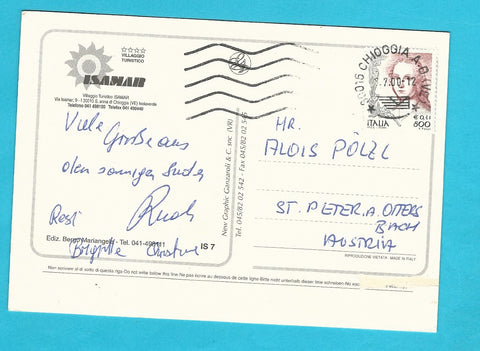 VILLAGGIO
TURISTICO
ISAMAR
Villaggio Turistico ISAMAR
Via Isamar, 9 - I 30010 S. anna di Chioggia (VE) Isolaverde
Telefono 041 498100 Telefax 041 490440
Viele Grüße aus
dem sonnigen Süden
Resi
Brigitte Christine
Ediz. Berno Mariangelo - Tel. 041-498111
IS 7
New Graphic Ganzaroli & C. snc (VR)
Tel. 045/82 02 542 - Fax 045/82 02 546
CHIOGGIA
7.00-12
ITALIA
€ 0,41
800
HR.
ALOIS PÖLZL
ST. PETER. A. OTTERS
BACH
AUSTRIA
RIPRODUZIONE VIETATA - MADE IN ITALY
Non scrivere al di sotto di questa riga Do not write below this line Ne pas écrire au dessous de cette ligne Bitte nicht unterhalb dieser Linie schreiben No esc